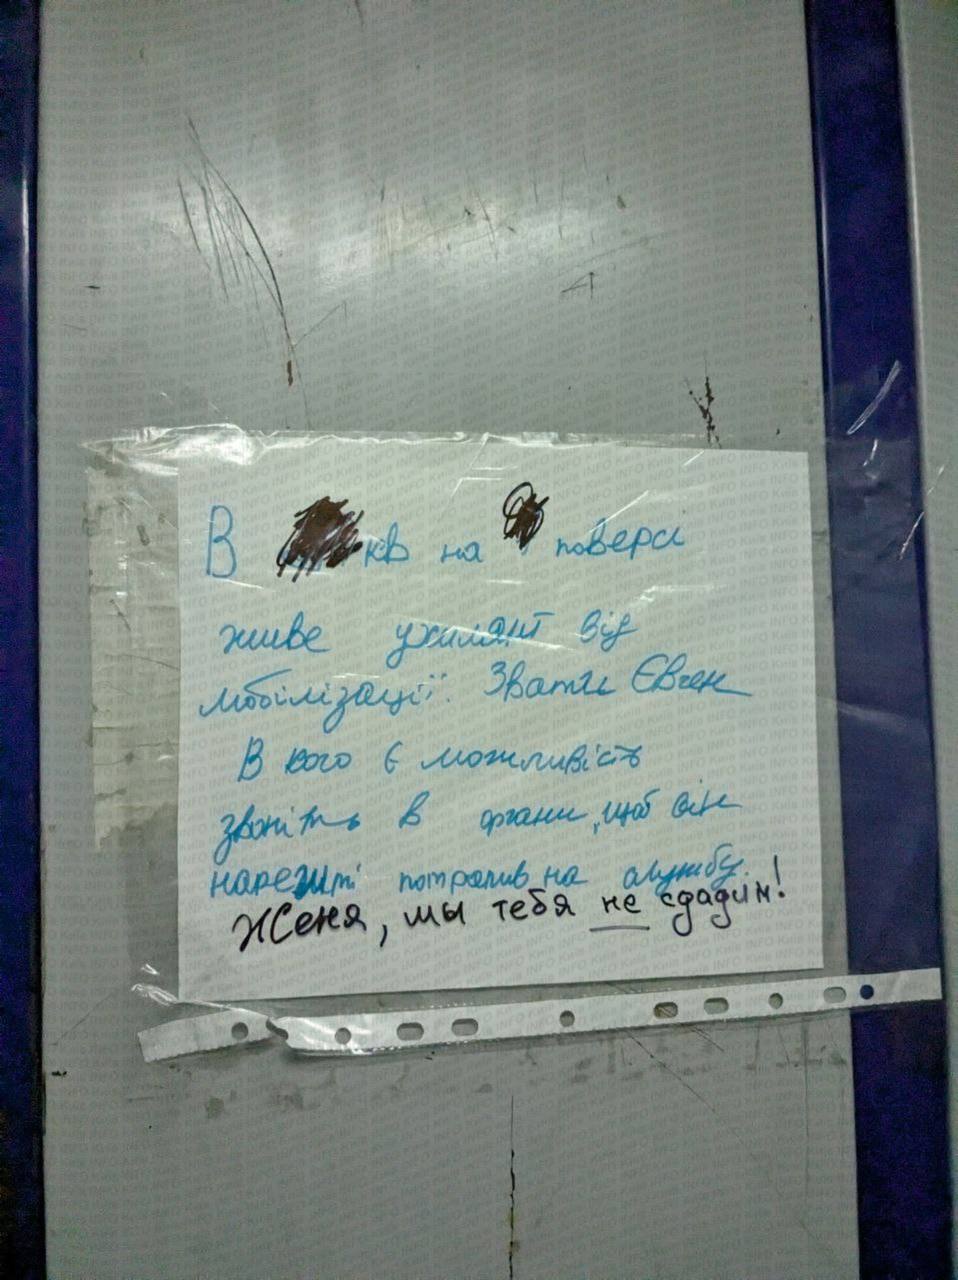 В кв на поверсі
живе ухилянт від
мобілізації. Звати Євген
В кого є можливість
звоніть в органи, щоб він
нарешті потрапив на службу.
Женя, мы тебя не сдадим!